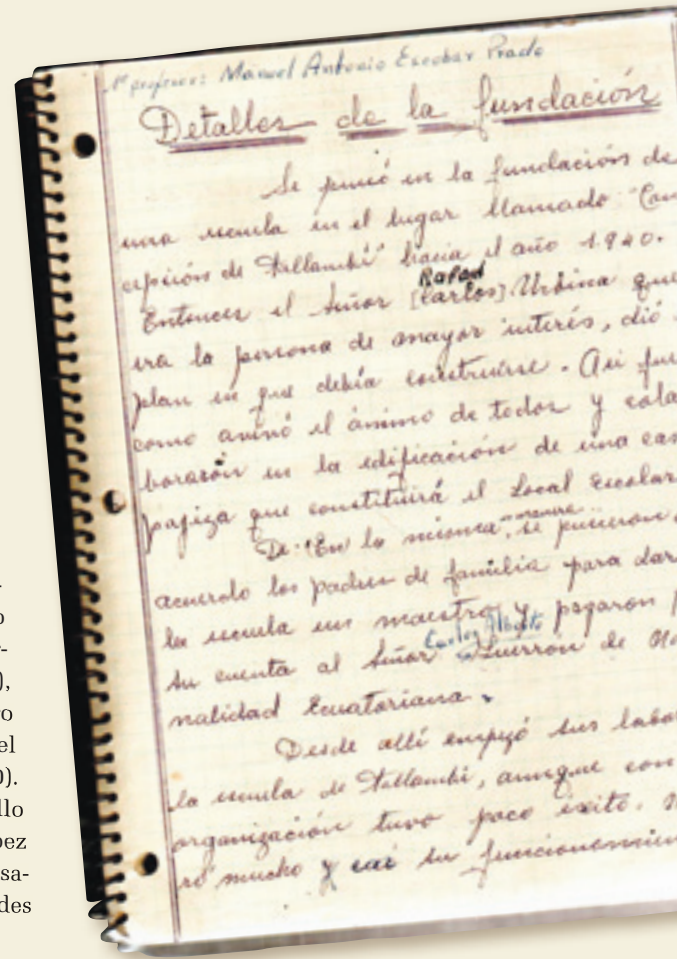 1er profesor: Manuel Antonio Escobar Prado
Detalles de la fundación
Se pensó en la fundación de
una escuela en el lugar llamado "Con
cepción de Tallambí" hacia el año 1.940.
Rafael
Entonces el Señor [Carlos] Urbina que
era la persona de mayor interés, dió
plan en que debía construirse. Asi fue
como animó el ánimo de todos y cola
boraron en la edificación de una cas
pajiza que constituirá el Local Escolar
manera
De: En la misma, se pusieron
acuerdo los padres de familia para dar
la escuela un maestro y pagaron p
Carlos Alberto
su cuenta al Señor Guerrón de Na
nalidad Ecuatoriana.
Desde allí empezó sus labor
la escuela de Tallambí, aunque con
organización tuvo poco éxito.
ró mucho y casi su funcionamien
-
o
r-
),
ro
el
0).
llo
pez
sa-
des